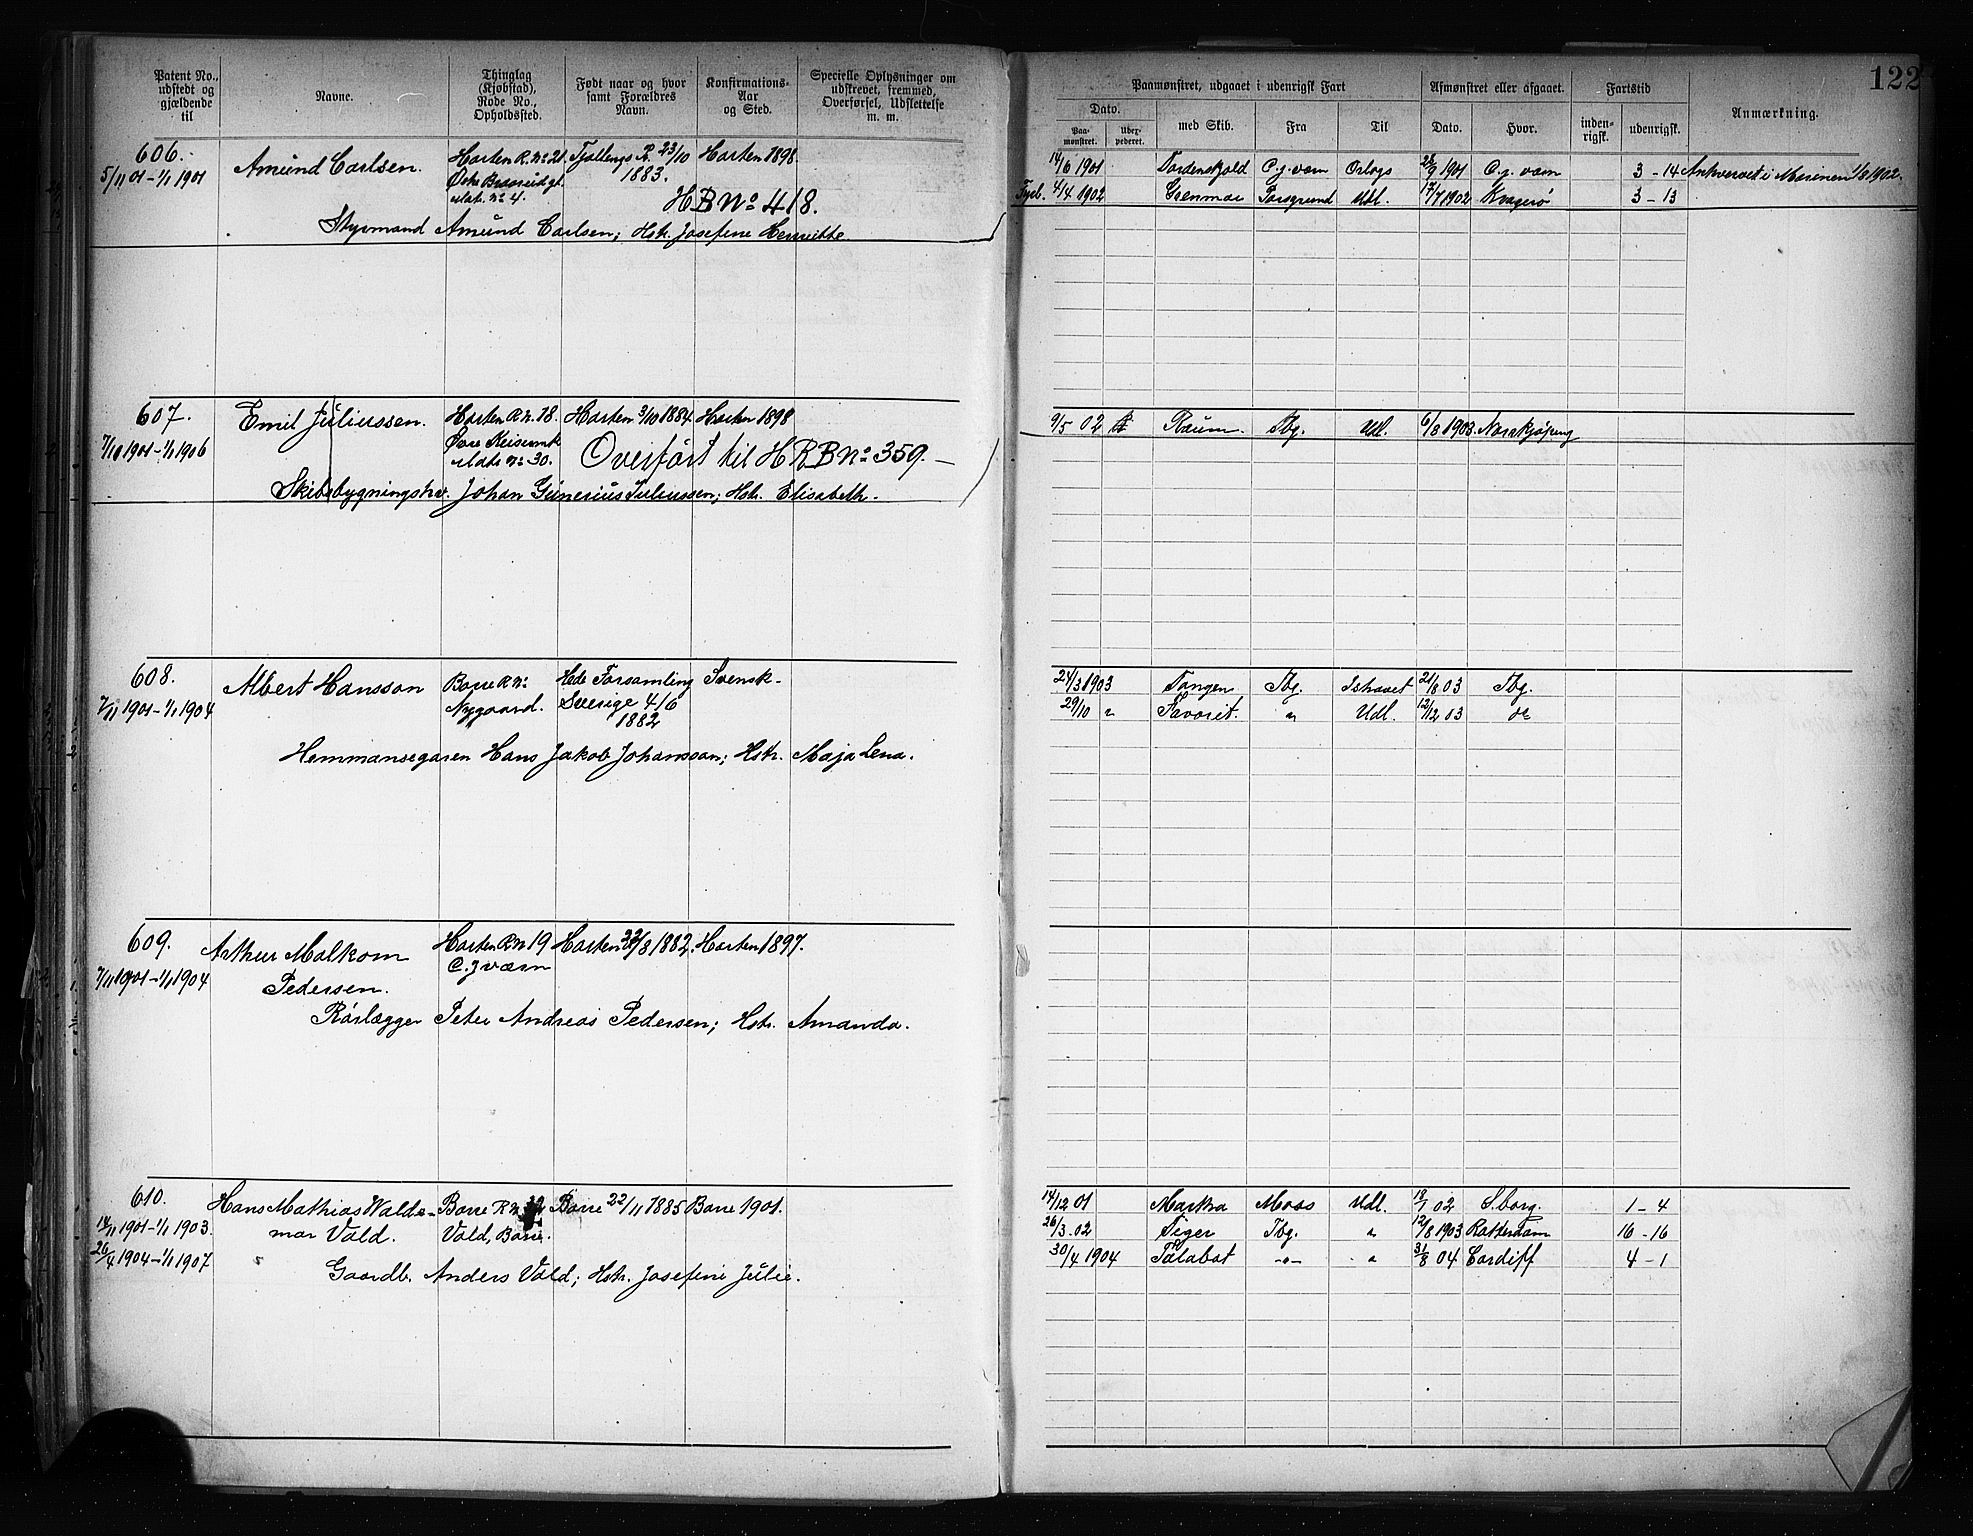 Patent No., udstedt og gjældende til
Navne.
Thinglag (Kjøbstad), Rode No., Opholdssted.
Født naar og hvor samt Forældres Navn.
Konfirmations-Aar og Sted.
Specielle Oplysninger om udskrevet, fremmed, Overførsel, Udslettelse m. m.
606.
5/11 01 - 1/1 1901
Amund Carlsen.
Horten R. No 21.
No 4.
23/10 1883.
Horten 1898
HB No 418.
Styrmand Amund Carlsen; Hst. Josefine Henriette.
607.
1901 - 1/1 1906
Emil Juliussen.
Horten R. No. 18.
No 30.
Horten 3/10 1884.
Horten 1898
Overført til HRB No 359. —
Skibsbygningstev. Johan Gunerius Juliussen; Hst. Elisabeth.
608.
7/11 1901 - 1/1 1904
Albert Hansson
Borre R No
Nygaard.
Hede Forsamling
Sverige 4/6
1882
Svensk.
Hemmansegaren Hans Jakob Johansson; Hstr. Maja Lena.
609.
7/11 1901 - 1/1 1904
Arthur Malkom
Pedersen.
Horten R No 19
C. J værn
Horten 22/8 1882.
Horten 1897.
Rørlægger Peter Andreas Pedersen; Hstr. Amanda.
610.
14/11 1901 - 1/1 1903.
26/4 1904 - 1/1 1907
Hans Mathias Walde-
mar Vold.
Borre R No
Vold, Borre.
Borre 22/11 1885
Borre 1901.
Gaardb. Anders Vold; Hstr. Josefine Julie.
122
Paamønstret, udgaaet i udenrigsk Fart
Afmønstret eller afgaaet.
Fartstid
Anmærkning.
Dato.
Paa-mønstret.
med Skib.
Fra
Til
Dato.
Hvor.
inden-rigsk.
udenrigsk.
14/6 1901 Tordenskjold C. j. værn Orlogs 28/9 1901 C. j. værn 3 - 14 i Marinen 1/8 1902.
4/4 1902 Grenmar Porsgrund Udl. 17/7 1902 Kragerø 3 - 13
9/5 02 Raum. Tbg. Udl. 6/8 1903. Norrkjøping
24/3 1903 Tangen Tbg. Ishavet 21/8 03 Tbg.
29/10 " Favorit. " Udl. 12/12 03 do
14/12 01 Markra Moss Udl. 18/1 02 S.borg. 1 - 4
26/3. 02 Tiger Tbg. " 12/8 1903 Rotterdam 16 - 16
30/4 1904 Talabot -"- " 31/8 04 Cardiff 4 - 1